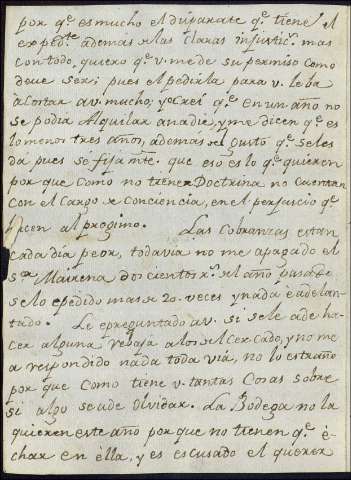 por q.e es mucho el disparate q.e tiene el
exped.te ademas de las Claras injustic.s mas
con todo, quiero q.e v. me de su permiso como
deve ser; pues el pedirla para v. le ba
a Costar a v. mucho; yo Crei q.e en un año no
se podia Alquilar a nadie, y me dicen q.e es
lo menos tres años, ademas del gusto q.e se les
da pues se fija m.te que eso es lo q.e quieren
por que como no tienen Doctrina no Cuentan
con el Cargo de Conciencia, en el perjuicio q.e
hacen al progimo. Las Cobranzas estan
cada dia peor, todavia no me a pagado el
s.or Mairena dos cientos r.s del año pasado
se lo e pedido mas de 20. veces y nada è adelan-
tado. Le e preguntado a v. si se le a de ha-
cer alguna rebaja a los del Cercado, y no me
a respondido nada toda via, no lo estraño
por que Como tiene v. tantas Cosas sobre
si algo se a de olvidar. La Bodega no la
quieren este año por que no tienen q.e è-
char en èlla, y es escusado el querer